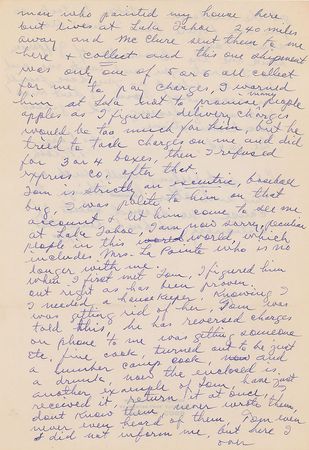 man who painted my house here
but lives at Lake Tahoe 240 miles
away and McClure sent them to me
here & collect and this one shipment
was only one of 5 or 6 all collect
for me to pay charges, I warned
him at Lake not to promise many people
apples as I figured delivery charges
would be too much for him, but he
tried to tack charges on me and did
for 3 or 4 boxes, then I refused
express co. after that.
Tom is strictly an excentric, baseball
bug, I was polite to him on that
account & let him come to see me
at Lake Tahoe, I am now sorry, peculiar
people in this world, which
includes Mrs. La Pointe who is no
longer with me.
When I first met Tom, I figured him
out right as has been proven.
I needed a housekeeper. Knowing I
was getting rid of her, Tom was
told this, he has reversed charges
on phone to me was getting someone
etc, fine cook, turned out to be just
a lumber camp cook and
a drunk, now the enclosed is
another example of Tom, have just
received it, return it at once, I
dont know them, never wrote them,
never even heard of them. Tom even
did not inform me, but here I
over